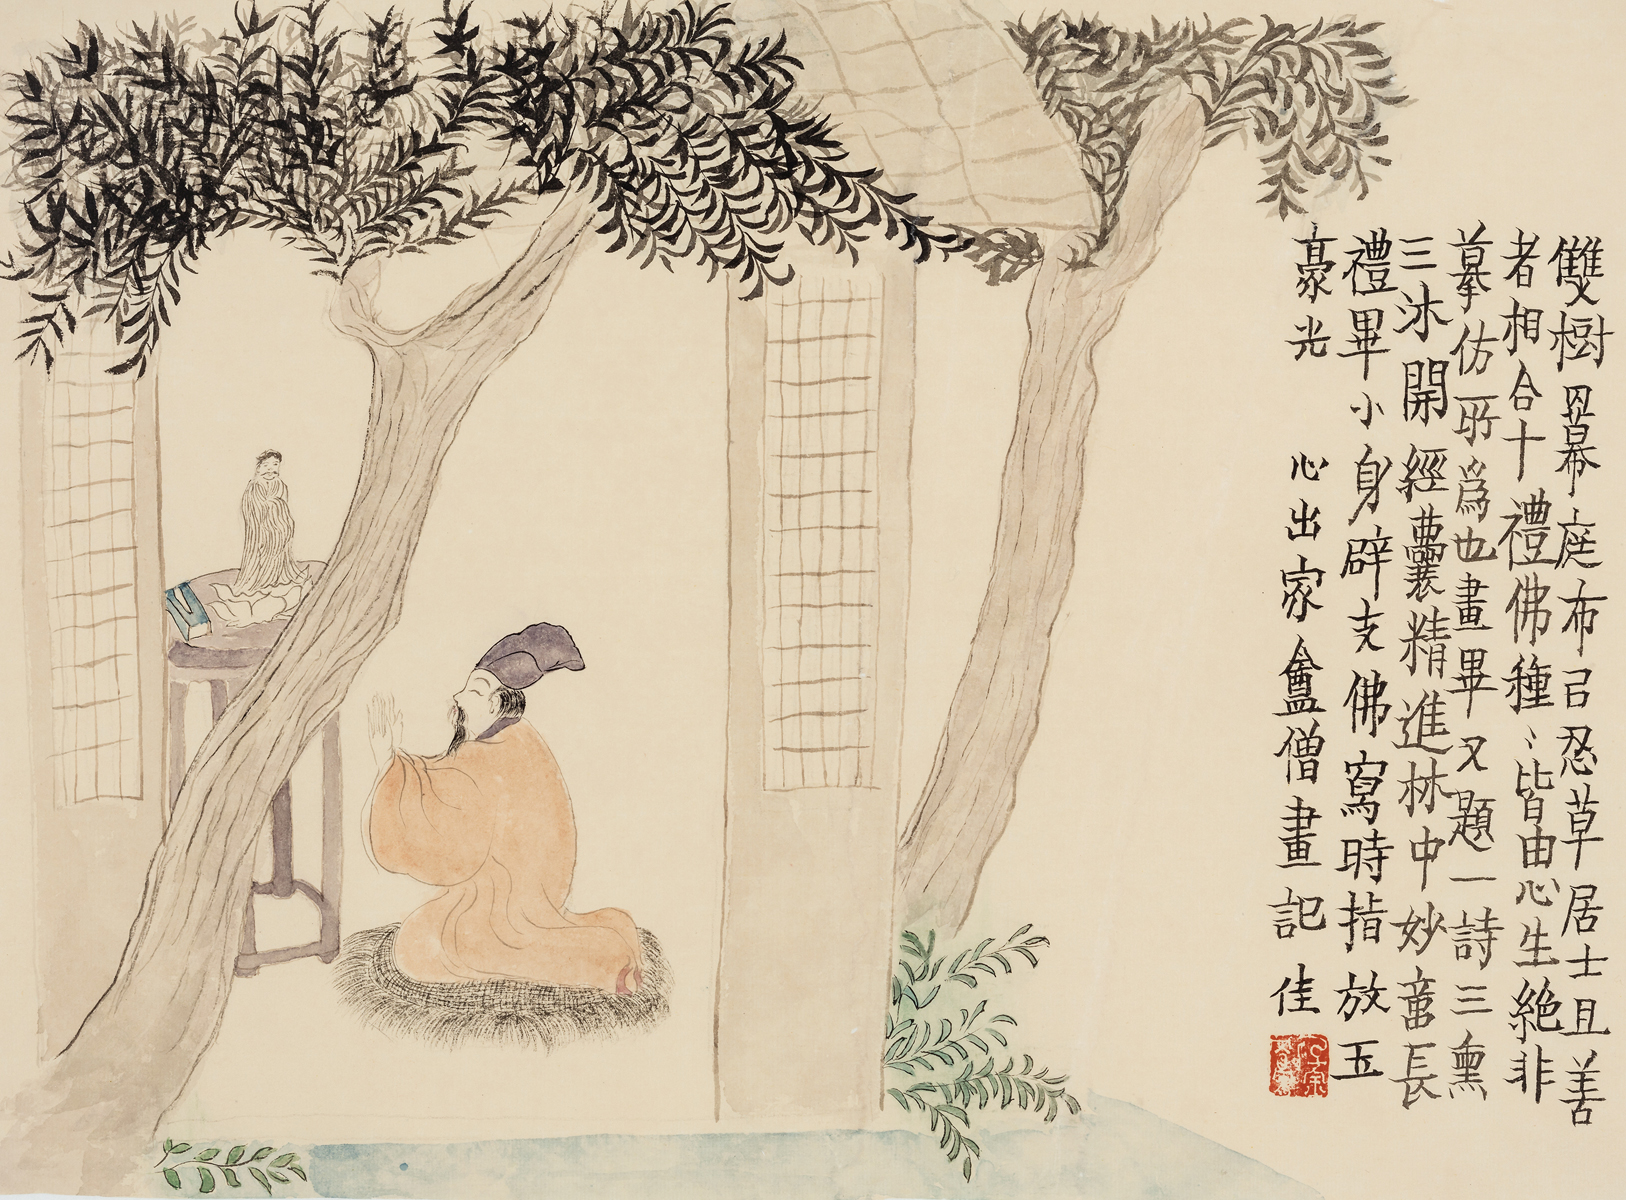 雙樹羃庭布㠯忍草居士且善
者相合十禮佛種〻皆由心生絶非
摹仿所爲也畫畢又題一詩三熏
三沐開經囊精進林中妙意長
禮畢小身辟支佛寫時指放玉
豪光 心出家盦僧畫記 佳